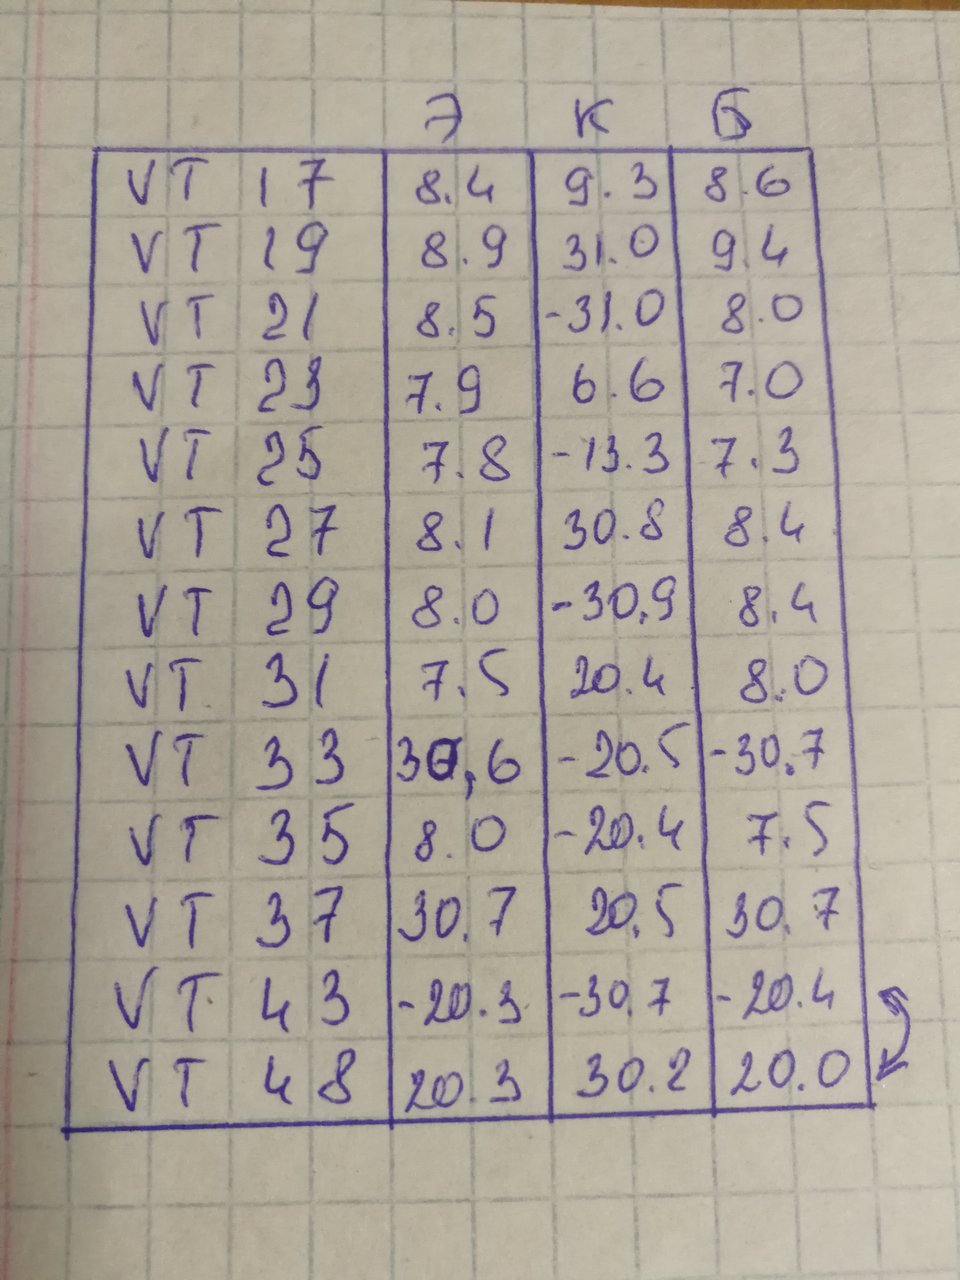 Э К Б
VT 17 8.4 9.3 8.6
VT 19 8.9 31.0 9.4
VT 21 8.5 -31.0 8.0
VT 23 7.9 6.6 7.0
VT 25 7.8 -13.3 7.3
VT 27 8.1 30.8 8.4
VT 29 8.0 -30.9 8.4
VT 31 7.5 20.4 8.0
VT 33 30,6 -20.5 -30.7
VT 35 8.0 -20.4 7.5
VT 37 30.7 20.5 30.7
VT 43 -20.3 -30.7 -20.4
VT 48 20.3 30.2 20.0